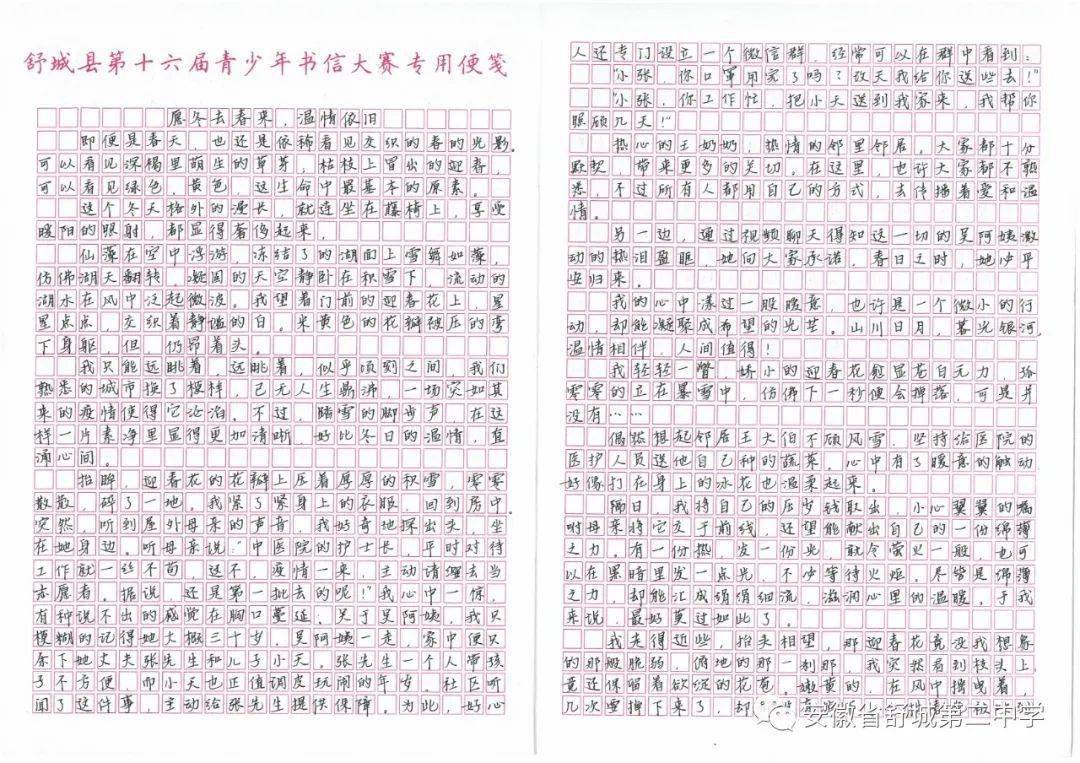 舒城县第十六届青少年书信大赛专用便笺
愿冬去春来，温情依旧
即便是春天，也还是依稀看见交织的春的光影。
可以看见深褐里萌生的草芽，枯枝上冒出的迎春，
可以看见绿色，黄色，这生命中最基本的原素。
这个冬天格外的漫长，就连坐在藤椅上，享受
暖阳的照射，都显得奢侈起来。
仙藻在空中浮游，冻结了的湖面上雪舞如藻，
仿佛湖天翻转，凝固的天空静卧在积雪下，流动的
湖水在风中泛起微波。我望着门前的迎春花上，星
星点点，交织着静谧的白。米黄色的花瓣被压的弯
下身躯，但，仍昂着头。
我只能远眺着，远眺着，似乎顷刻之间，我们
熟悉的城市换了模样，已无人生鼎沸，一场突如其
来的疫情使得它沦泊。不过，踏雪的脚步声，在这
样一片素净里显得更加清晰，好比冬日的温情，直
涌心间。
抬眸，迎春花的花瓣上压着厚厚的积雪，零零
散散，碎了一地。我紧了紧身上的衣服，回到房中。
突然，听到屋外母亲的声音，我好奇地探出头，坐
在她身边。听母亲说：“中医院的护士长，平时对待
工作就一丝不苟，这不，疫情一来，主动请缨去当
志愿者。据说，还是第一批去的呢！”我心中一悸，
有种说不出的感觉在胸口蔓延。关于吴阿姨，我只
模糊的记得她大概三十岁。吴阿姨一走，家中便只
余下她丈夫张先生和儿子小天。张先生一个人带孩
子不方便，而小天也正值调皮玩闹的年岁。社区听
闻了这件事，主动给张先生提供保障。为此，好心
人还专门设立一个微信群，经常可以在群中看到：
“小张，你口罩用完了吗？改天我给你送些去！”
“小张，你工作忙，把小天送到我家来，我帮你
照顾几天！”
热心的王奶奶，热情的邻里邻居，大家都十分
默契，带来更多的关切。在这里，也许大家都不熟
悉，不过所有人都用自己的方式，去传播着爱和温
情。
另一边，通过视频聊天得知这一切的吴阿姨激
动的热泪盈眶，她向大家承诺，春日之时，她必平
安归来。
我的心中漾过一股暖意，也许是一个微小的行
动，却能凝聚成希望的光芒。山川日月，暮光银河，
温情相伴，人间值得！
我轻轻一瞥，娇小的迎春花愈显花白无力，孤
零零的立在暴雪中，仿佛下一秒便会掉落，可是并
没有……
偶然想起邻居王大伯不顾风雪，坚持给医院的
医护人员送他自己种的蔬菜。心中有了暖意的触动，
好像打在身上的冰花也温柔起来。
隔日，我将自己的压岁钱取出，小心翼翼的嘱
咐母亲将它交于前线，还望能献出自己的一份绵薄
之力。有一份热，发一份光，就令萤火一般，也可
以在黑暗里发一点光，不必等待火炬。尽管是绵薄
之力，却能汇成绢绢细流，滋润心里的温暖。于我
来说，最好莫过如此了。
我走得近些，抬头相望，那迎春花竟没我想象
的那般脆弱。俯地的那一刹那，我突然看到枝头上，
竟还保留着欲绽的花苞。嫩黄的，在风中摇曳着，
几次要掉下来了，却
安徽省舒城第二中学